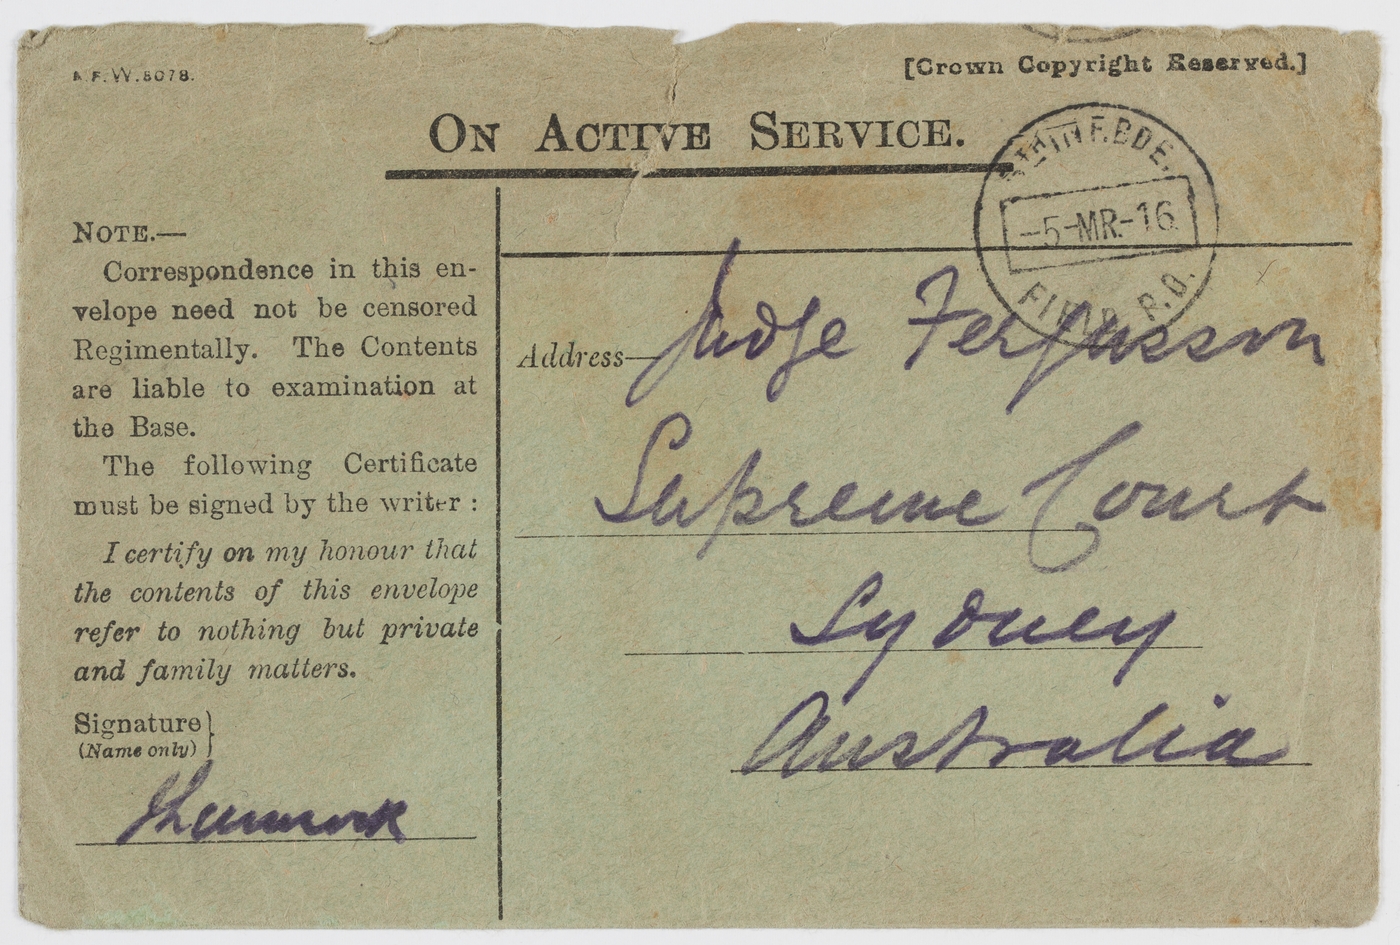 A.F.W.3078.
[Crown Copyright Reserved.]
ON ACTIVE SERVICE.
INF.BDE.
-5-MR.-16
FIELD P.O.
NOTE.—
Correspondence in this en-
velope need not be censored
Regimentally. The Contents
are liable to examination at
the Base.
The following Certificate
must be signed by the writer :
I certify on my honour that
the contents of this envelope
refer to nothing but private
and family matters.
Signature
(Name only)
Address—
Judge Fergusson
Supreme Court
Sydney
Australia